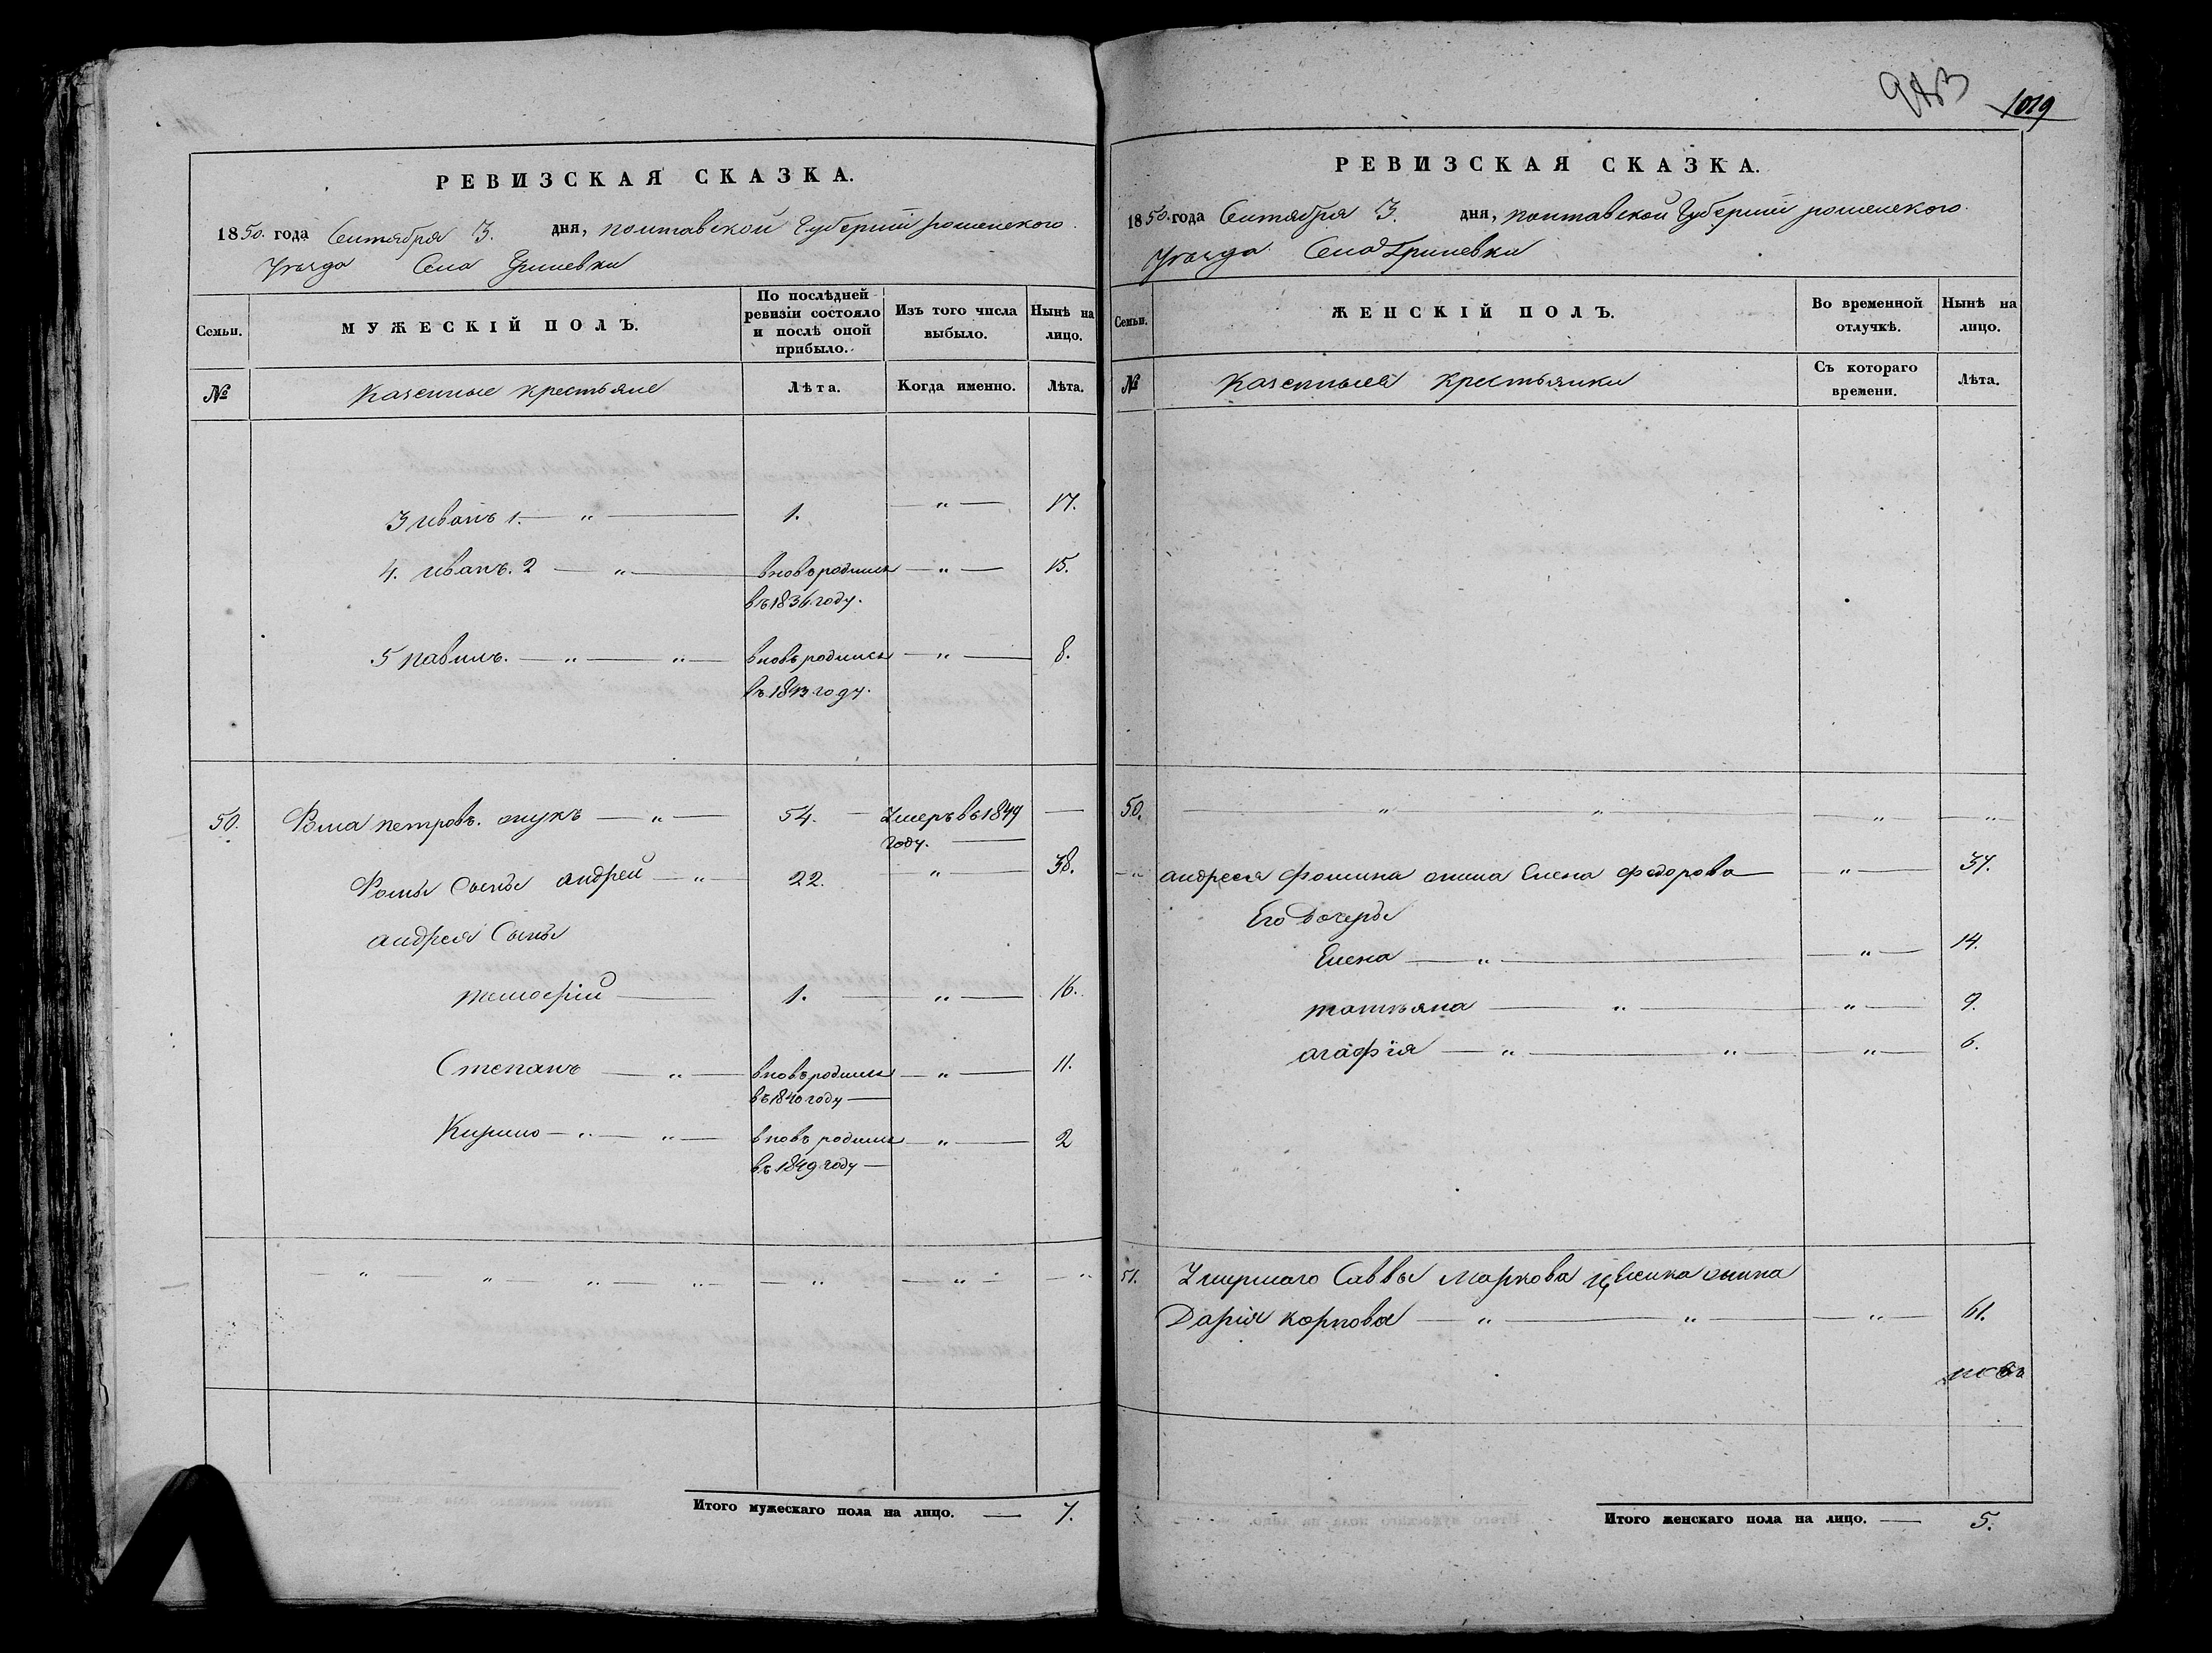 РЕВИЗСКАЯ СКАЗКА.
1850. года Сентября 3. дня, полтавской Губерніи роменского
Уезда Села Гриневки
Семьи.
МУЖЕСКІЙ ПОЛЪ.
По послѣдней ревизіи состояло и послѣ оной прибыло.
Изъ того числа выбыло.
Нынѣ на лицо.
№
Казенные крестьяне
Лѣта.
Когда именно.
Лѣта.
3 иванъ 1. — " — 1. — " — 17.
4. иванъ. 2 — " — вновьродился — " — 15.
въ 1836 году.
5 павилъ. — " — " — вновьродился — " — 8.
въ 1843 году.
50. Фома петровъ. — " — 54. — Умеръ въ 1849 —
году. —
Фомы Сынъ андрей — " — 22. " — 38.
андрея Сыны
тимофій — 1. — " — 16.
Степанъ — " — вновьродился — " — 11.
въ 1840 году —
Кирило — " — " — вновь родился — " — 2
въ 1849 году —
— " — " — " — " — " — " — "
Итого мужескаго пола на лицо. — 7.
1019
РЕВИЗСКАЯ СКАЗКА.
1850. года Сентября 3. дня, полтавской Губерніи роменского
Уезда Села Гриневки
Семьи.
ЖЕНСКІЙ ПОЛЪ.
Во временной отлучкѣ.
Нынѣ на лицо.
№
Казенныея крестьянки
Съ котораго времени.
Лѣта.
50. — " — " — " — "
— " андрея фомина жина Елена федорова — " — 37.
Его Дочеры
Елена — " — " — 14.
татьяна — " — " — 9.
агафія — " — " — " — 6.
51. Умершаго Саввы Маркова жина
Дарія карпова — " — " — " — 61.
Итого женскаго пола на лицо. — 5.